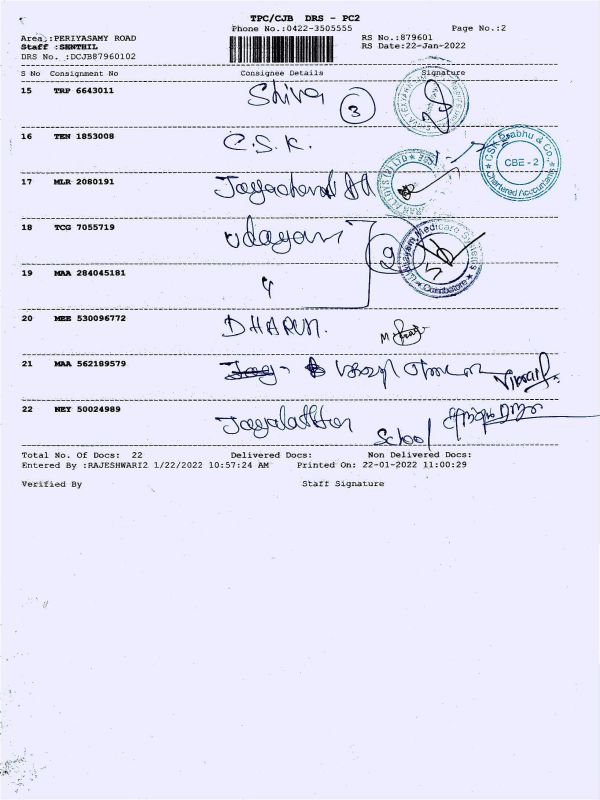 TPC/CJB DRS - PC2
Phone No.:0422-3505555 Page No.:2
Area :PERIYASAMY ROAD RS No.:879601
Staff :SENTHIL RS Date:22-Jan-2022
DRS No. :DCJB87960102
S No Consignment No Consignee Details Signature
15 TRP 6643011 Shiva 3
16 TEN 1853008 C.S.K.
CSK Prabhu & Co., CBE - 2 Chartered Accountants
17 MLR 2080191
18 TCG 7055719 Udayam 2
Udhayam Medicare Coimbatore
19 MAA 284045181 "
20 MEE 530096772 DHARUN.
21 MAA 562189579
22 NEY 50024989 School
Total No. Of Docs: 22 Delivered Docs: Non Delivered Docs:
Entered By :RAJESHWARI2 1/22/2022 10:57:24 AM Printed On: 22-01-2022 11:00:29
Verified By Staff Signature